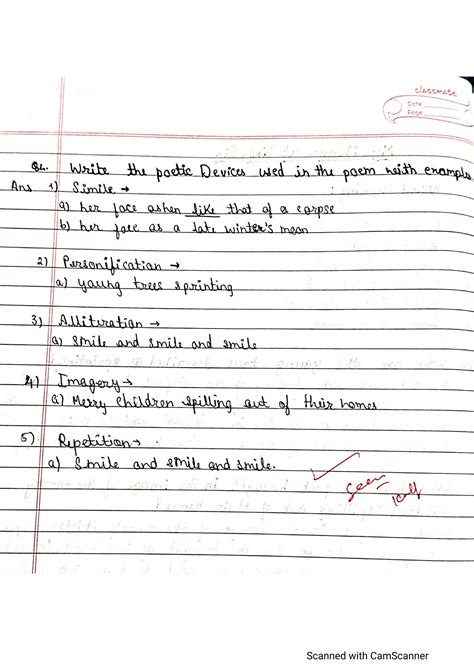 classmate
Date
Page
Q4. Write the poetic Devices used in the poem with example
Ans 1) Simile →
a) her face ashen like that of a corpse
b) her face as a late winter's moon
2) Personification →
a) young trees sprinting
3) Alliteration →
a) smile and smile and smile
4) Imagery →
a) Merry children spilling out of their homes
5) Repetition →
a) Smile and smile and smile.
Seen
Scanned with CamScanner